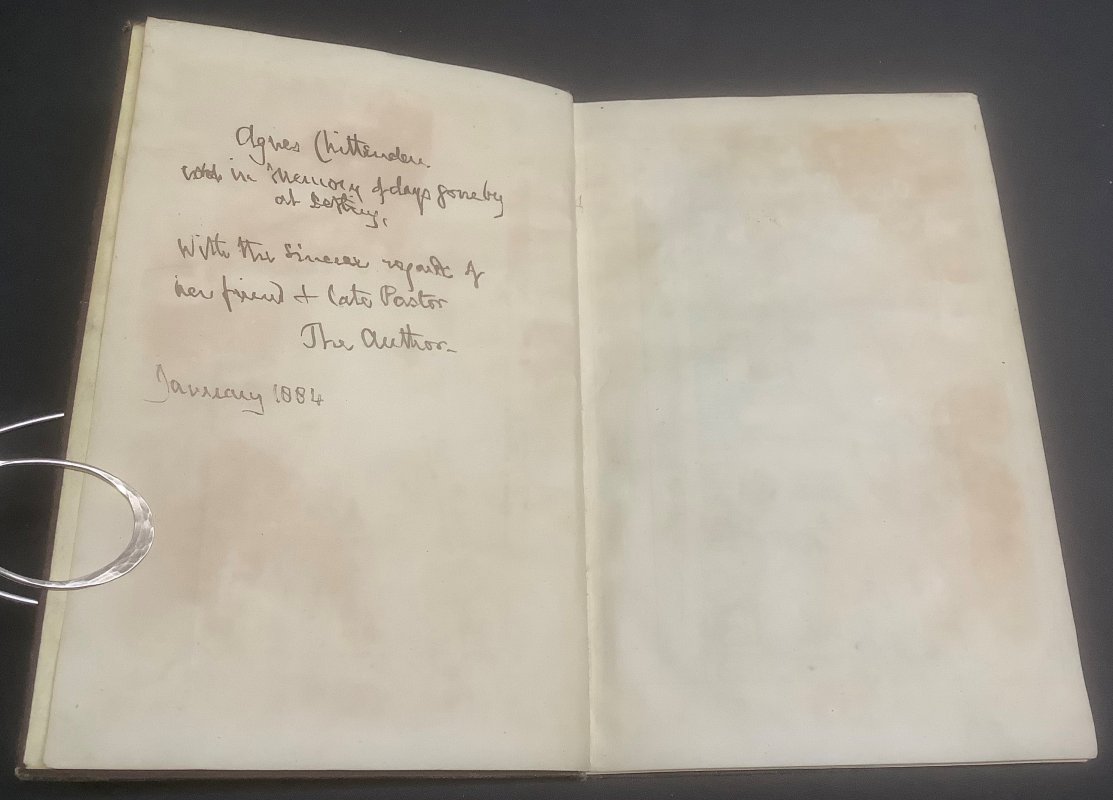 Agnes Chittenden.
in memory of days gone by
at
With the sincere regards of
her friend + late Pastor
The Author_
January 1884